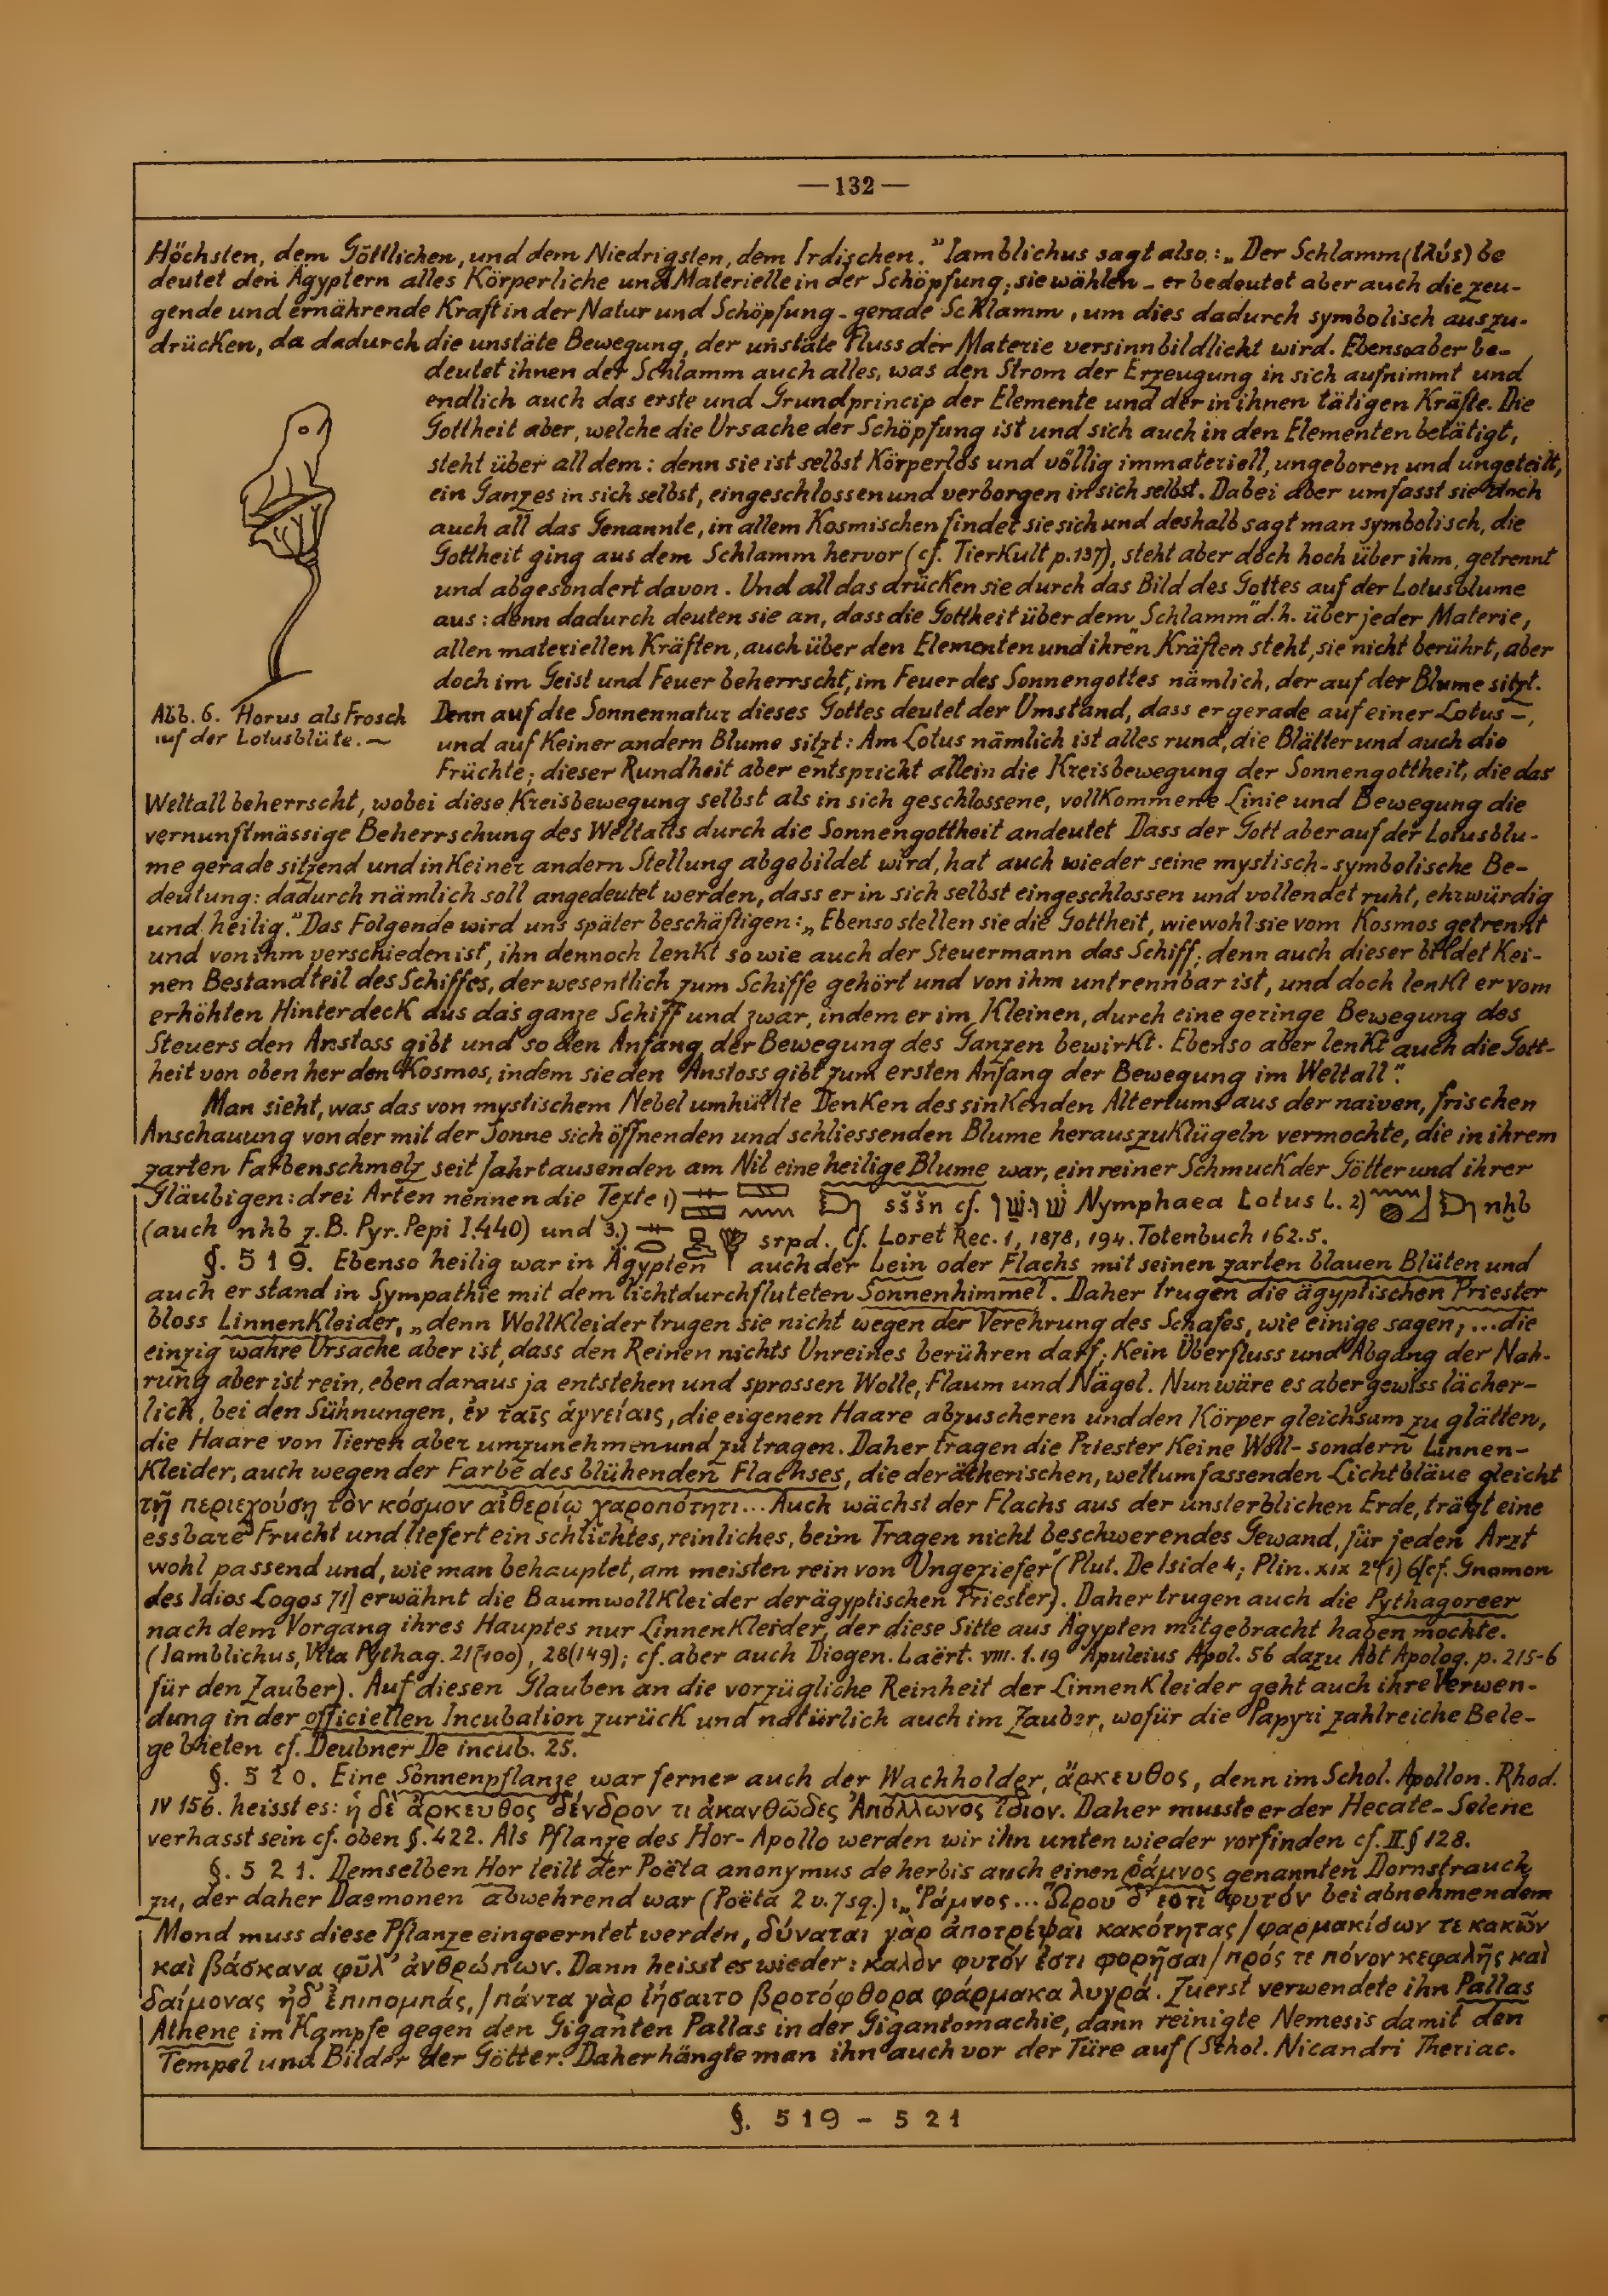 —132—
Höchsten, dem Göttlichen, und dem Niedrigsten, dem Irdischen." Iamblichus sagt also: „Der Schlamm (ἰλύς) be
deutet den Ägyptern alles Körperliche und Materielle in der Schöpfung; sie wählen - er bedeutet aber auch die zeu-
gende und ernährende Kraft in der Natur und Schöpfung - gerade Schlamm, um dies dadurch symbolisch auszu-
drücken, da dadurch die unstäte Bewegung, der unstäte Fluss der Materie versinnbildlicht wird. Ebenso aber be-
deutet ihnen der Schlamm auch alles, was den Strom der Erzeugung in sich aufnimmt und
endlich auch das erste und Grundprincip der Elemente und der in ihnen tätigen Kräfte. Die
Gottheit aber, welche die Ursache der Schöpfung ist und sich auch in den Elementen betätigt,
steht über all dem: denn sie ist selbst Körperlos und völlig immateriell, ungeboren und ungeteilt,
ein Ganzes in sich selbst, eingeschlossen und verborgen in sich selbst. Dabei aber umfasst sie doch
auch all das Genannte, in allem Kosmischen findet sie sich und deshalb sagt man symbolisch, die
Gottheit ging aus dem Schlamm hervor (cf. Tierkult p. 137), steht aber doch hoch über ihm, getrennt
und abgesondert davon. Und all das drücken sie durch das Bild des Gottes auf der Lotusblume
aus: denn dadurch deuten sie an, dass die Gottheit über dem „Schlamm" d.h. über jeder Materie,
allen materiellen Kräften, auch über den Elementen und ihren Kräften steht, sie nicht berührt, aber
doch im Geist und Feuer beherrscht, im Feuer des Sonnengottes nämlich, der auf der Blume sitzt.
Abb. 6. Horus als Frosch
auf der Lotusblüte. —
Denn auf die Sonnennatur dieses Gottes deutet der Umstand, dass er gerade auf einer Lotus-,
und auf Keiner andern Blume sitzt: Am Lotus nämlich ist alles rund, die Blätter und auch die
Früchte; dieser Rundheit aber entspricht allein die Kreisbewegung der Sonnengottheit, die das
Weltall beherrscht, wobei diese Kreisbewegung selbst als in sich geschlossene, vollkommene Linie und Bewegung die
vernunftmässige Beherrschung des Weltalls durch die Sonnengottheit andeutet Dass der Gott aber auf der Lotusblu-
me gerade sitzend und in Keiner andern Stellung abgebildet wird, hat auch wieder seine mystisch-symbolische Be-
deutung: dadurch nämlich soll angedeutet werden, dass er in sich selbst eingeschlossen und vollendet ruht, ehrwürdig
und heilig." Das Folgende wird uns später beschäftigen: „Ebenso stellen sie die Gottheit, wiewohl sie vom Kosmos getrennt
und von ihm verschieden ist, ihn dennoch lenkt so wie auch der Steuermann das Schiff; denn auch dieser bildet Kei-
nen Bestandteil des Schiffes, der wesentlich zum Schiffe gehört und von ihm untrennbar ist, und doch lenkt er vom
erhöhten Hinterdeck aus das ganze Schiff und zwar, indem er im Kleinen, durch eine geringe Bewegung des
Steuers den Anstoss gibt und so den Anfang der Bewegung des Ganzen bewirkt. Ebenso aber lenkt auch die Gott-
heit von oben her den Kosmos, indem sie den Anstoss gibt zum ersten Anfang der Bewegung im Weltall".
Man sieht, was das von mystischem Nebel umhüllte Denken des sinkenden Altertums aus der naiven, frischen
Anschauung von der mit der Sonne sich öffnenden und schliessenden Blume herauszuklügeln vermochte, die in ihrem
zarten Farbenschmelz seit Jahrtausenden am Nil eine heilige Blume war, ein reiner Schmuck der Götter und ihrer
Gläubigen: drei Arten nennen die Texte 1) sššn cf. Nymphaea Lotus L. 2) nḫb
(auch nhb z.B. Pyr. Pepi I.440) und 3.) srpd. Cf. Loret Rec. 1, 1878, 194. Totenbuch 162.5.
§. 519. Ebenso heilig war in Ägypten auch der Lein oder Flachs mit seinen zarten blauen Blüten und
auch er stand in Sympathie mit dem lichtdurchfluteten Sonnenhimmel. Daher trugen die ägyptischen Priester
bloss Linnenkleider, „denn Wollkleider trugen sie nicht wegen der Verehrung des Schafes, wie einige sagen; ... die
einzig wahre Ursache aber ist, dass den Reinen nichts Unreines berühren darf; Kein Überfluss und Abgang der Nah-
rung aber ist rein, eben daraus ja entstehen und sprossen Wolle, Flaum und Nägel. Nun wäre es aber gewiss lächer-
lich, bei den Sühnungen, ἐν ταῖς ἁγνείαις, die eigenen Haare abzuscheren und den Körper gleichsam zu glätten,
die Haare von Tieren aber umzunehmen und zu tragen. Daher tragen die Priester Keine Woll- sondern Linnen-
Kleider, auch wegen der Farbe des blühenden Flachses, die der ätherischen, weltumfassenden Lichtbläue gleicht
τῇ περιεχούσῃ τὸν κόσμον αἰθερίῳ χαροπότητι... Auch wächst der Flachs aus der unsterblichen Erde, trägt eine
essbare Frucht und liefert ein schlichtes, reinliches, beim Tragen nicht beschwerendes Gewand, für jeden Arzt
wohl passend und, wie man behauptet, am meisten rein von Ungeziefer" (Plut. De Iside 4; Plin. XIX 2 (1) 6 [cf. Gnomon
des Idios Logos 71] erwähnt die Baumwollkleider der ägyptischen Priester). Daher trugen auch die Pythagoreer
nach dem Vorgang ihres Hauptes nur Linnenkleider, der diese Sitte aus Ägypten mitgebracht haben mochte.
(Iamblichus, Vita Pythag. 21 (100), 28 (149); cf. aber auch Diogen. Laërt. VIII. 1. 19 Apuleius Apol. 56 dazu Abt Apolog. p. 215-6
für den Zauber). Auf diesen Glauben an die vorzügliche Reinheit der Linnenkleider geht auch ihre Verwen-
dung in der officiellen Incubation zurück und natürlich auch im Zauber, wofür die Papyri zahlreiche Bele-
ge bieten cf. Deubner De incub. 25.
§. 520. Eine Sonnenpflanze war ferner auch der Wachholder, ἄρκευθος, denn im Schol. Apollon. Rhod.
IV 156. heisst es: ἡ δὲ ἄρκευθος δένδρον τι ἀκανθῶδες Ἀπόλλωνος ἴδιον. Daher musste er der Hecate-Selene
verhasst sein cf. oben §. 422. Als Pflanze des Hor-Apollo werden wir ihn unten wieder vorfinden cf. II § 128.
§. 521. Demselben Hor teilt der Poëta anonymus de herbis auch einen ῥάμνος genannten Dornstrauch
zu, der daher Daemonen abwehrend war (Poëta 2 v. 7 sq.): „Ῥάμνος ... Ὥρου δ' ἐστὶ φυτόν bei abnehmendem
Mond muss diese Pflanze eingeerntet werden, δύναται γὰρ ἀποτρέψαι κακότητας / φαρμακίδων τε κακῶν
καὶ βάσκανα φῦλ' ἀνθρώπων. Dann heisst es wieder: καλὸν φυτόν ἐστι φορῆσαι / πρός τε πόνον κεφαλῆς καὶ
δαίμονας ἠδ' ἐπιπομπάς, / πάντα γὰρ ἰήσαιτο βροτόφθορα φάρμακα λυγρά. Zuerst verwendete ihn Pallas
Athene im Kampfe gegen den Giganten Pallas in der Gigantomachie, dann reinigte Nemesis damit den
Tempel und Bilder der Götter. Daher hängte man ihn auch vor der Türe auf (Schol. Nicandri Theriac.
§. 519 - 521